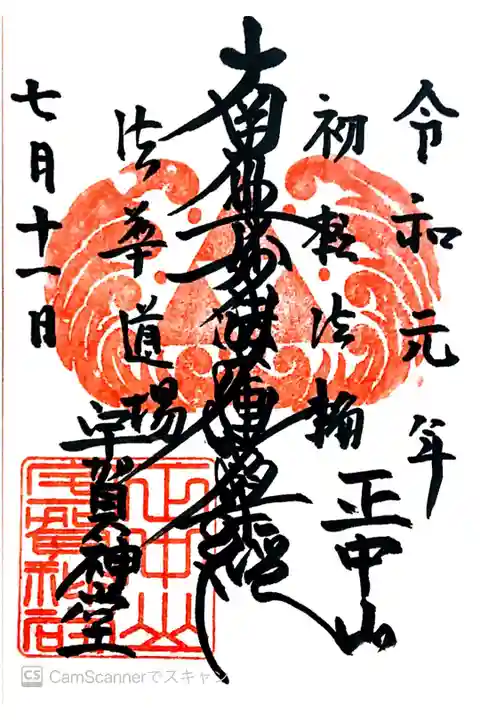 令和元年
正中山
初転法輪
南無妙法蓮華経
法華道場
宇賀神堂
七月十一日
正中山
宇賀神社
CS CamScannerでスキャン